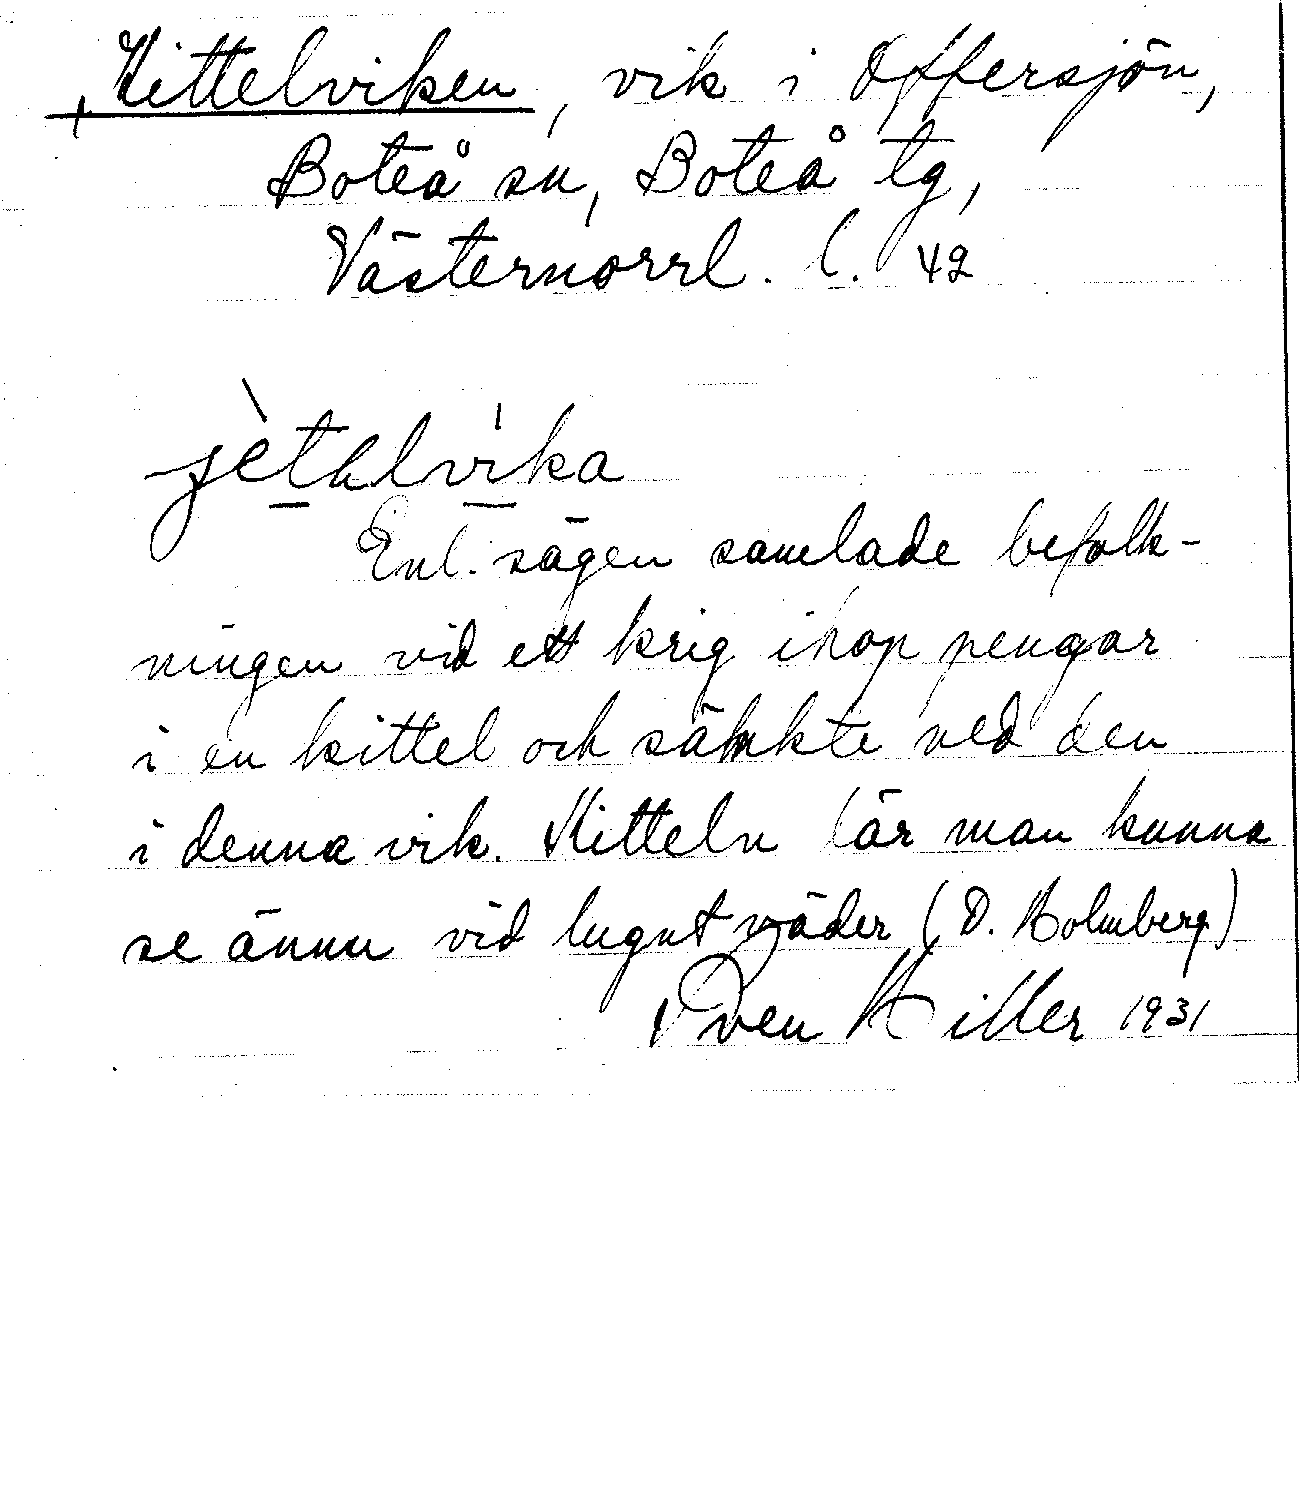 Kittelviken, vik i Offersjön,
Boteå sn, Boteå tg,
Västernorrl. l. 42
Enl. sägen samlade befolk-
ningen vid ett krig ihop pengar
i en kittel och sänkte ned den
i denna vik. Kitteln lär man kunna
se ännu vid lugnt väder (D. Holmberg)
Sven Hiller 1931